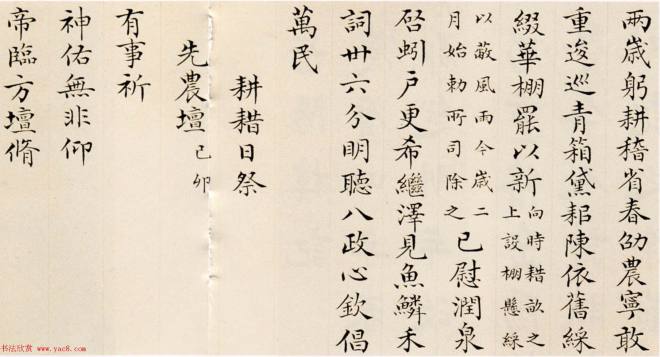 兩歲躬耕稽省春劭農寧敢
重逡巡青箱黛耜陳依舊綵
綴華棚罷以新向時耤畝之
上設棚懸綵
以蔽風雨今歲二
月始勅所司除之已慰潤泉
啓蚓戶更希繼澤見魚鱗禾
詞卅六分明聽八政心欽倡
萬民
耕耤日祭
先農壇己卯
有事祈
神佑無非仰
帝臨方壇脩
书法欣赏 www.yac8.com